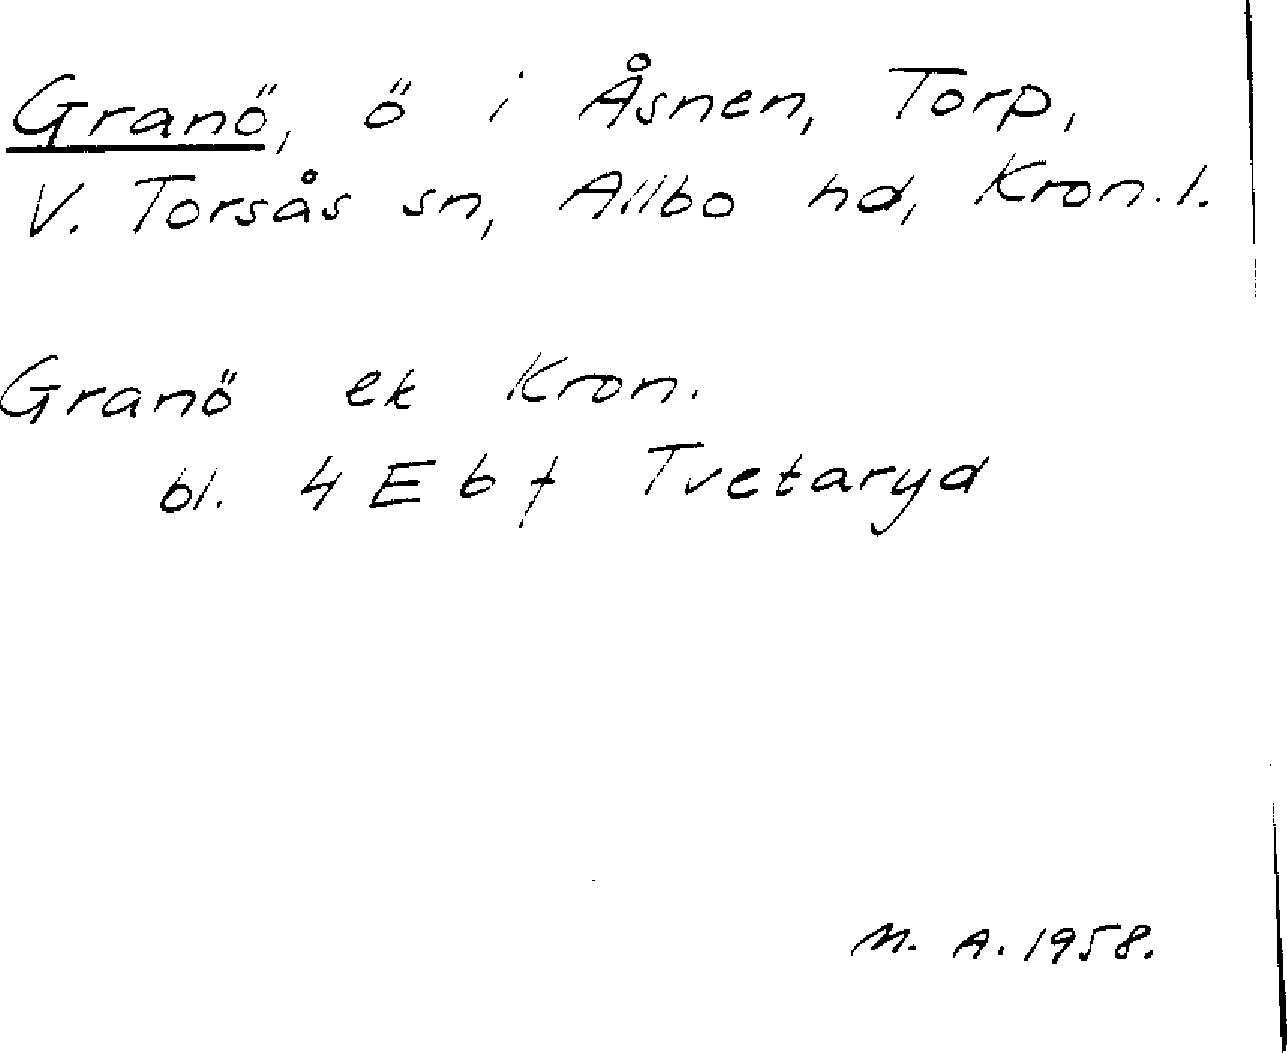 Granö, ö i Åsnen, Torp,
V. Torsås sn, Allbo hd, Kron. l.
Granö ek Kron.
bl. 4 E b f Tvetaryd
M. A. 1958.